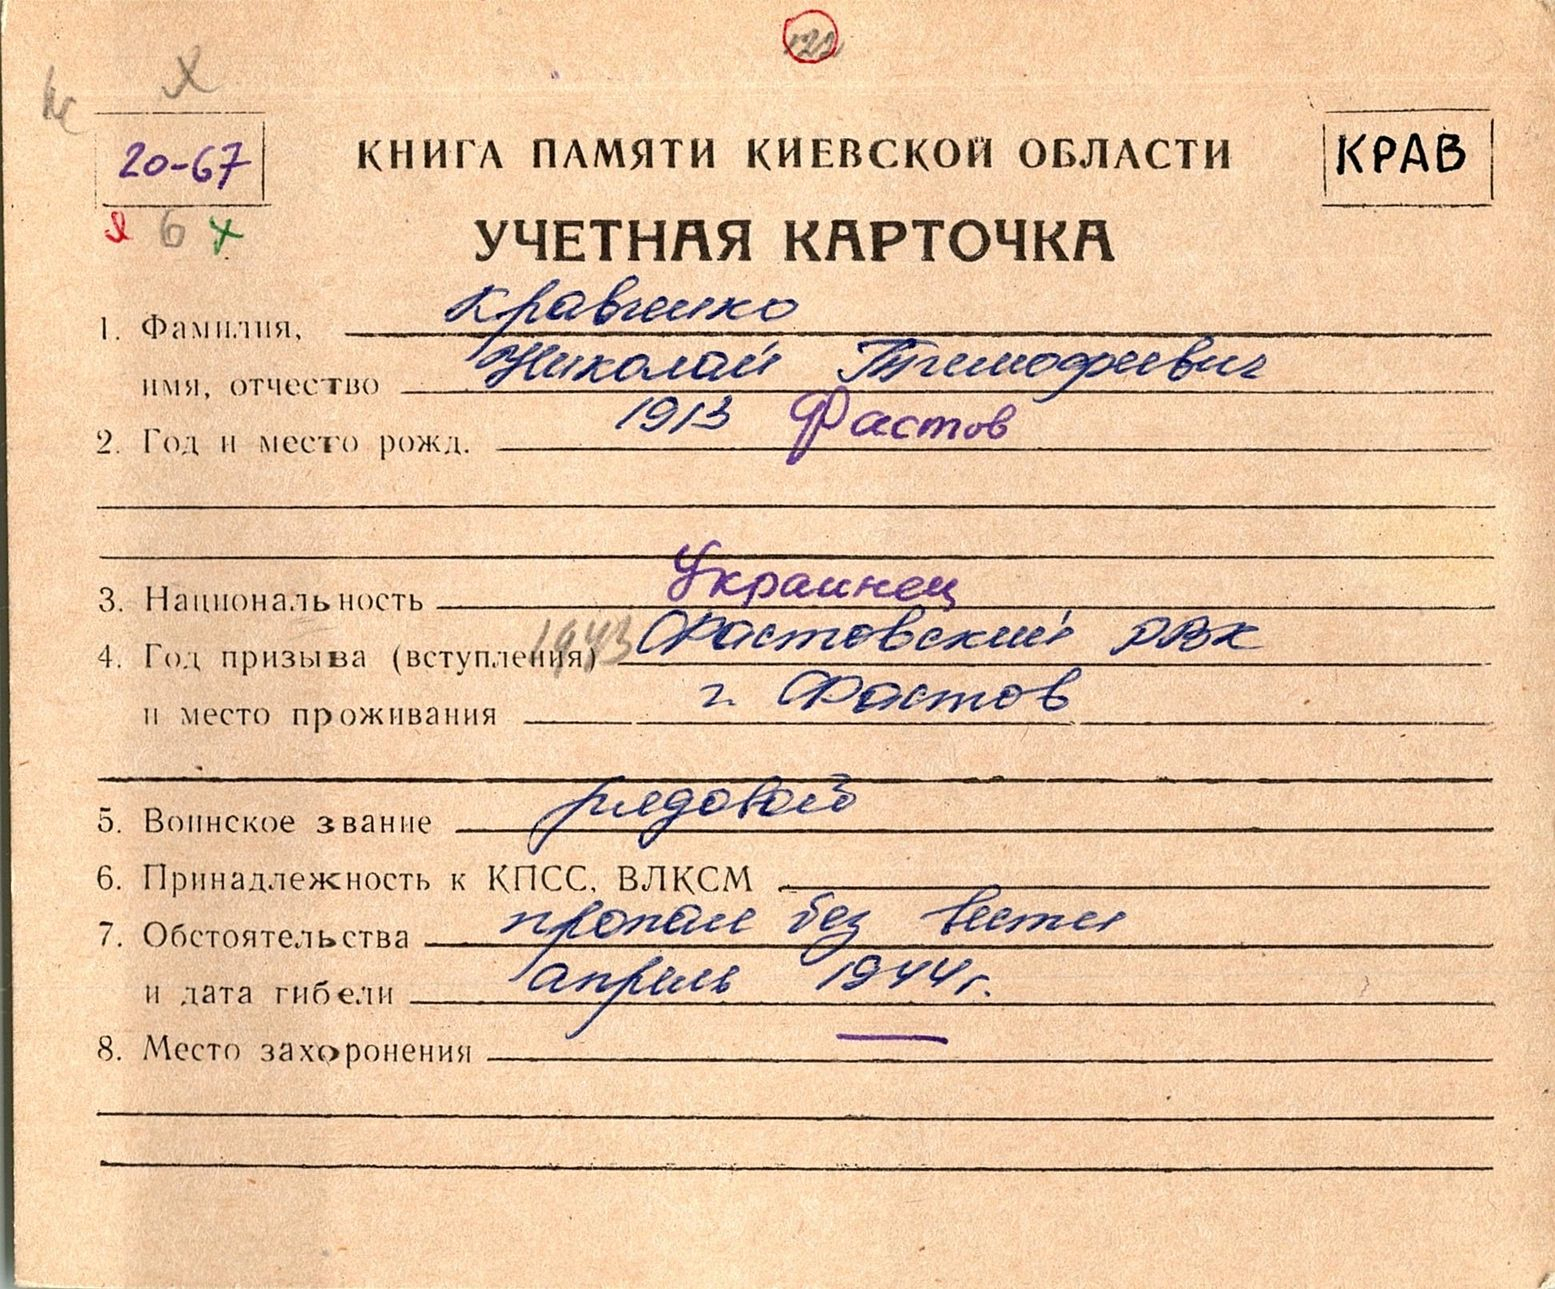 122
20-67
КНИГА ПАМЯТИ КИЕВСКОЙ ОБЛАСТИ
КРАВ
6
УЧЕТНАЯ КАРТОЧКА
1. Фамилия, Кравченко
имя, отчество Николай Тимофеевич
2. Год и место рожд. 1913 Фастов
3. Национальность Украинец
4. Год призыва (вступления) 1943 Фастовский РВК
и место проживания г. Фастов
5. Воинское звание рядовой
6. Принадлежность к КПСС, ВЛКСМ
7. Обстоятельства пропал без вести
и дата гибели апрель 1944г.
8. Место захоронения —